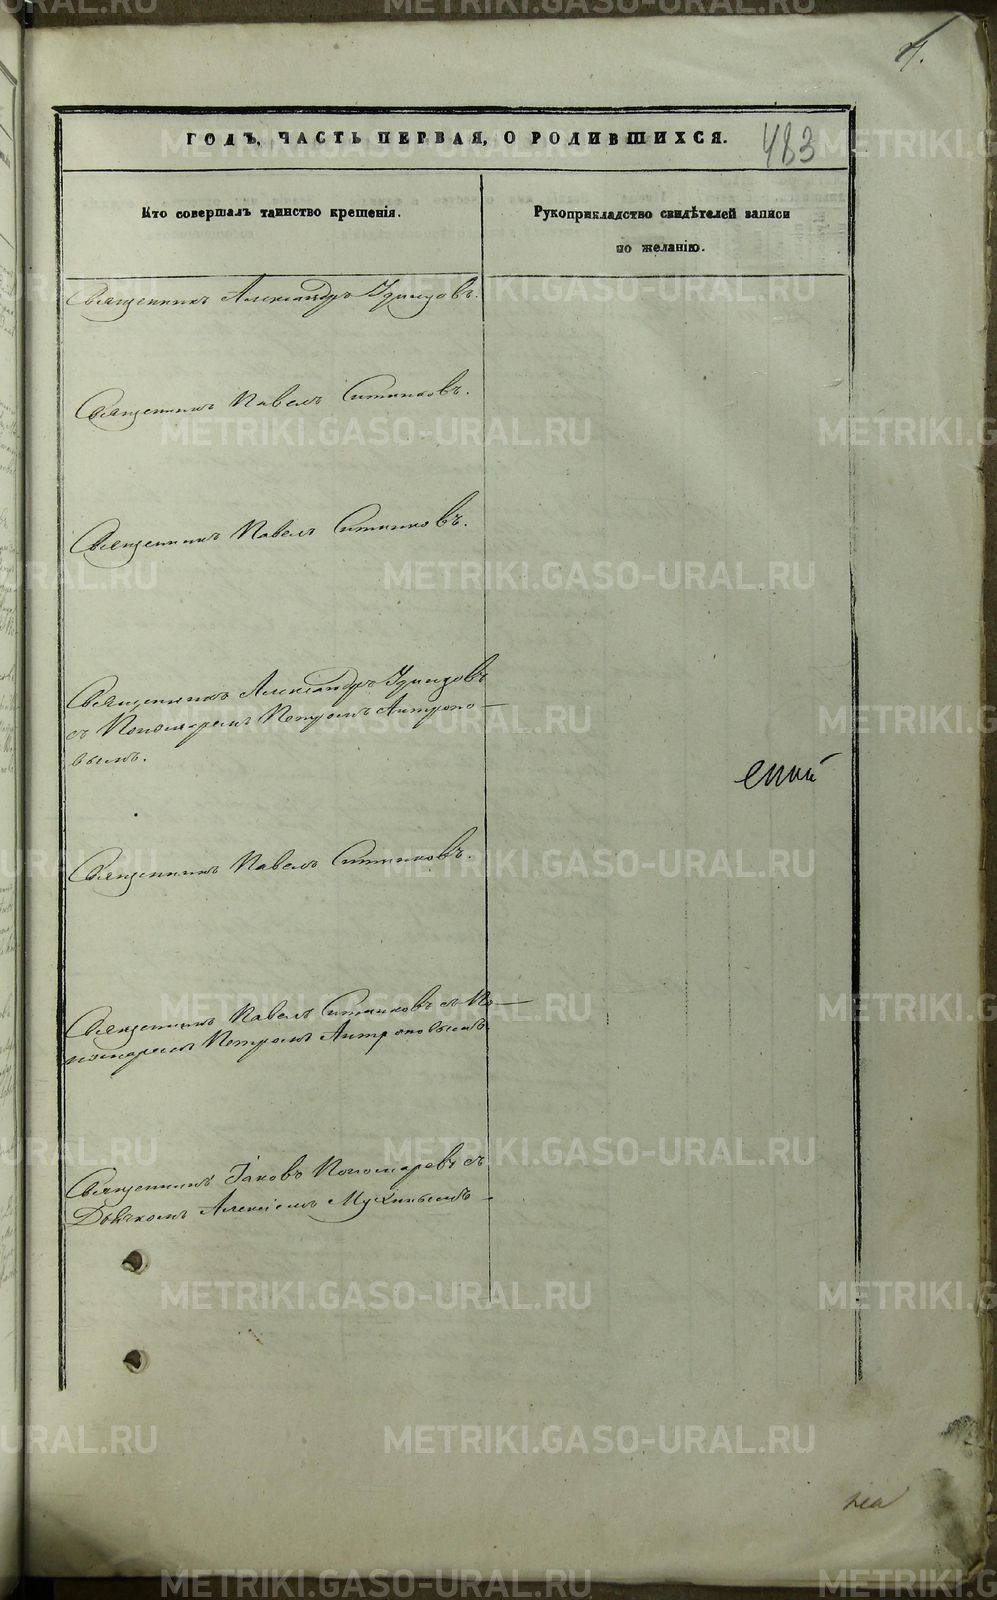 4.
ГОДЪ, ЧАСТЬ ПЕРВАЯ, О РОДИВШИХСЯ.
483
Кто совершалъ таинство крещенія.
Рукоприкладство свидѣтелей записи
по желанію.
Священникъ Александръ Удинцовъ.
Священникъ Павелъ Ситниковъ.
Священникъ Павелъ Ситниковъ.
Священникъ Александръ Удинцовъ
съ Пономаремъ Петромъ Антропо-
вымъ.
Священникъ Павелъ Ситниковъ.
Священникъ Павелъ Ситниковъ съ По-
номаремъ Петромъ Антроповымъ
Священникъ Іаковъ Пономаревъ съ
Дьячкомъ Алексіемъ Мухинымъ
METRIKI.GASO-URAL.RU